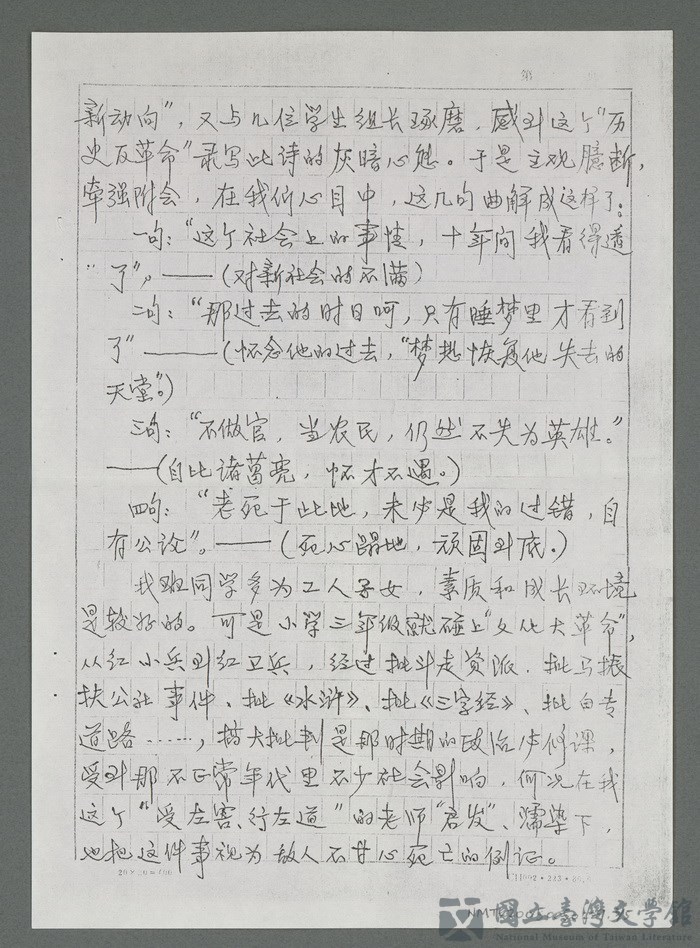 第
新动向”，又与几位学生组长琢磨，感到这个“历
史反革命”录写此诗的灰暗心态。于是主观臆断，
牵强附会，在我们心目中，这几句曲解成这样了：
一句：“这个社会上的事情，十年间我看得透
了”。——（对新社会的不满）
二句：“那过去的时日呵，只有睡梦里才看到
了”——（怀念他的过去，“梦想恢复他失去的
天堂”。）
三句：“不做官，当农民，仍然不失为英雄。”
——（自比诸葛亮，怀才不遇。）
四句：“老死于此地，未必是我的过错，自
有公论”。——（死心蹋地，顽固到底。）
我班同学多为工人子女，素质和成长环境
是较好的。可是小学三年级就碰上“文化大革命”，
从红小兵到红卫兵，经过批斗走资派、批马振
扶公社事件、批《水浒》、批《三字经》、批白专
道路……，搞大批判是那时期的政治必修课，
受到那不正常年代里不少社会影响，何况在我
这个“受左害、行左道”的老师“启发”、濡染下，
也把这件事视为敌人不甘心死亡的例证。
國立臺灣文學館
National Museum of Taiwan Literature